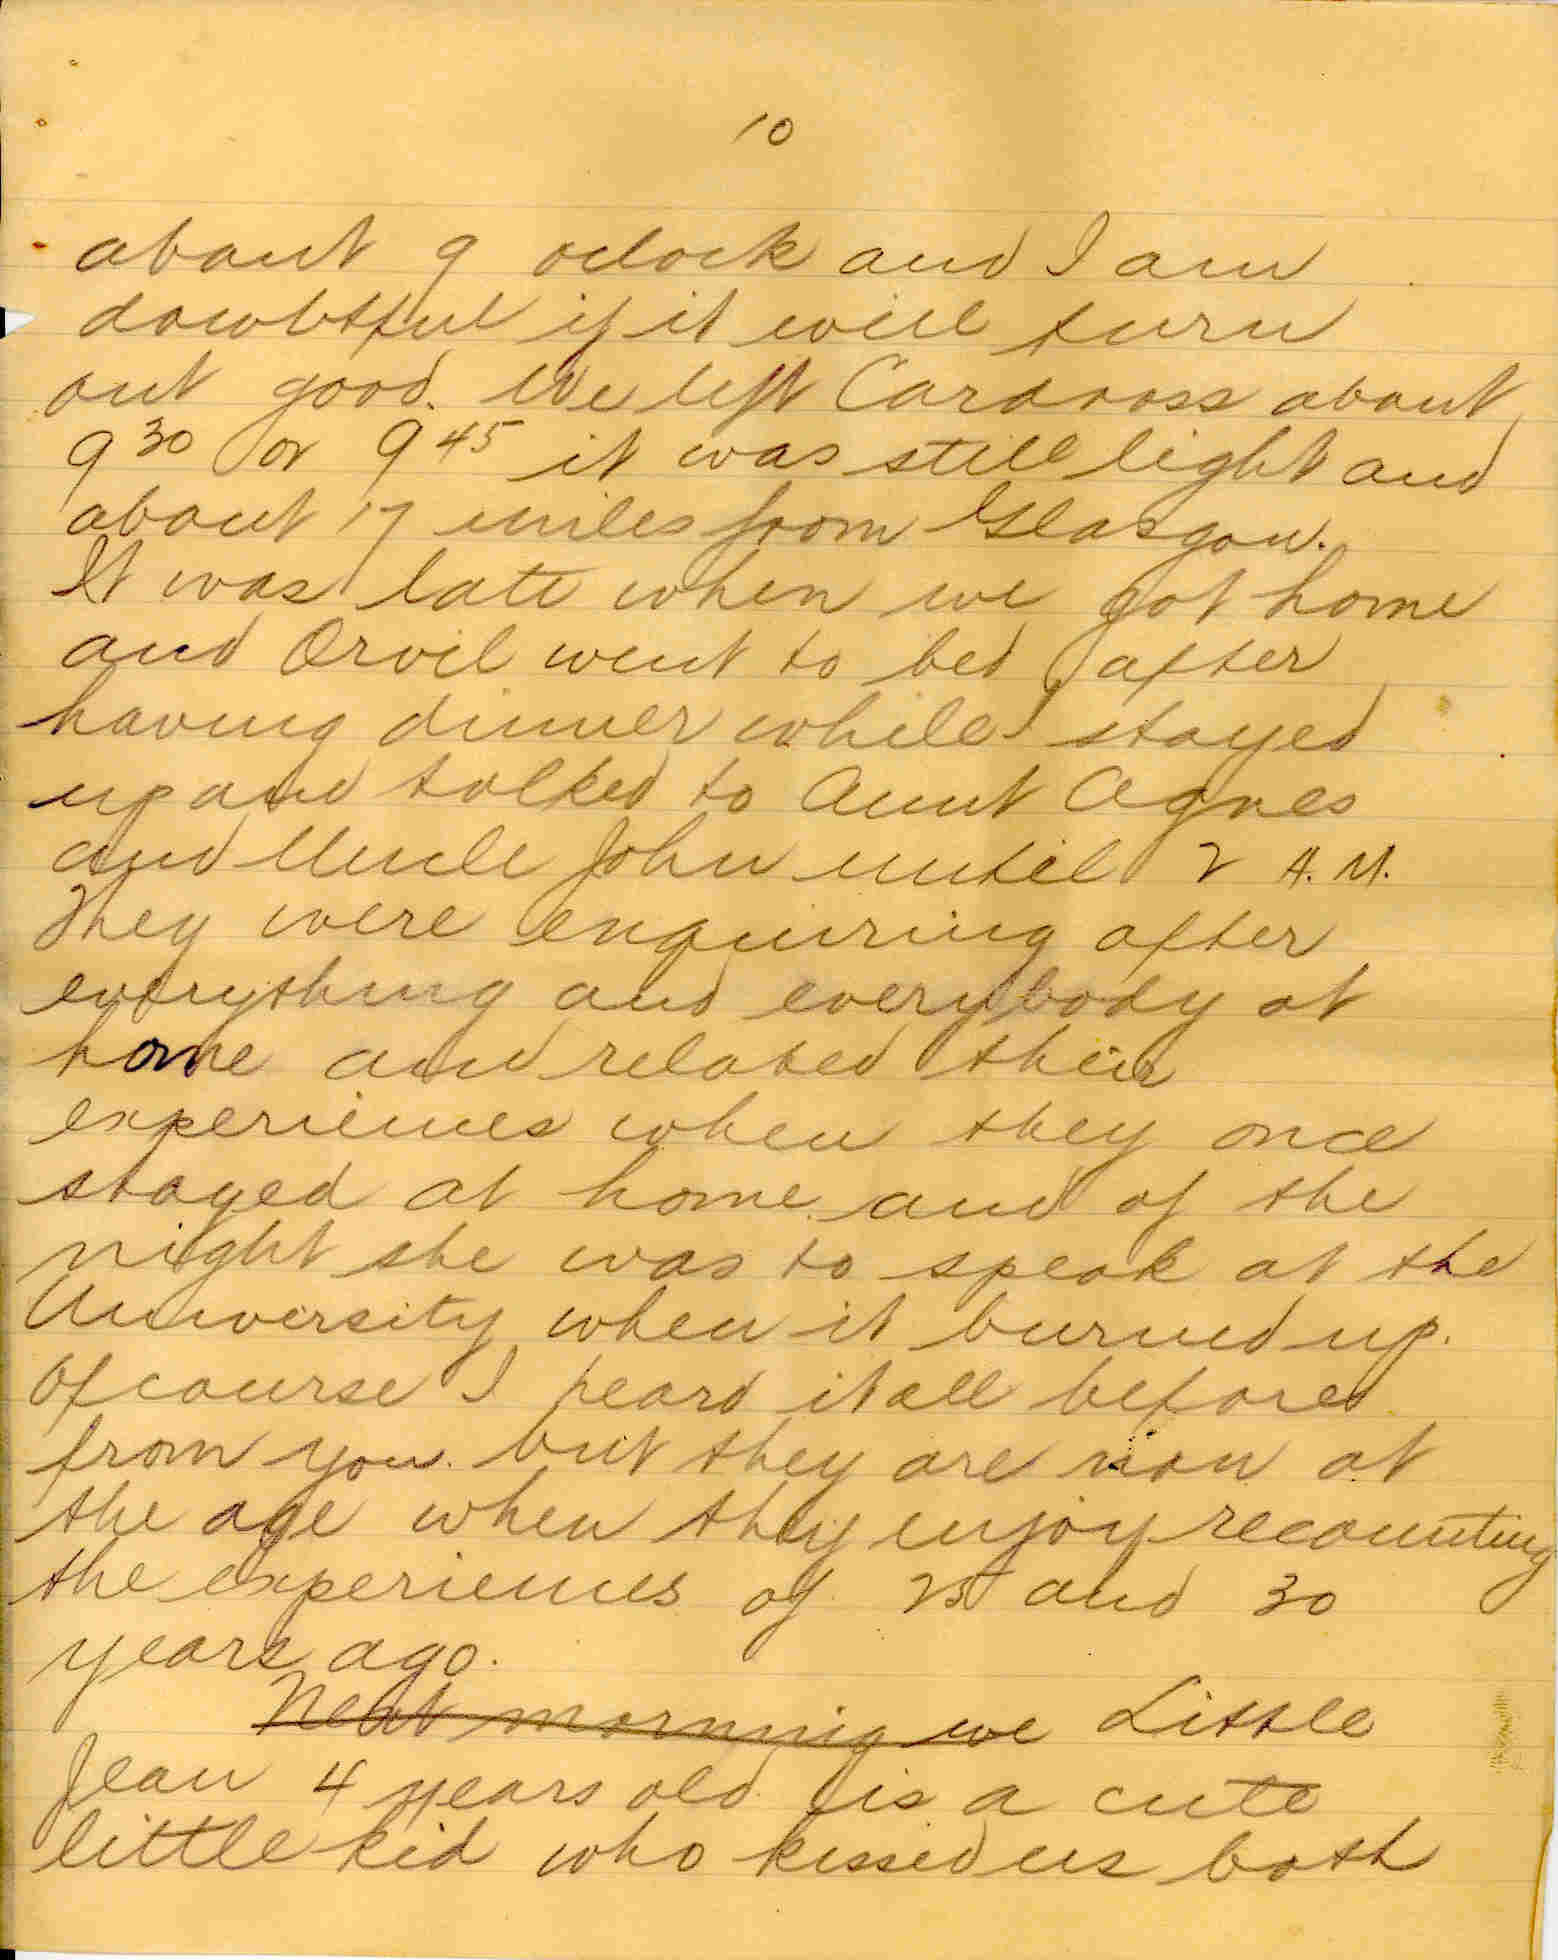 10
about 9 oclock and I am
dowbtful if it will turn
out good. We left Cardross about
9 30 or 9 45 it was still light and
about 17 miles from Glasgow.
It was late when we got home
and Orvil went to bed after
having dinner while I stayed
up and talked to Aunt Agnes
and Uncle John until 2 A.M.
They were enquiring after
everything and everybody at
home and related their
experiences when they once
stayed at home and of the
night she was to speak at the
University when it burned up.
Of course I heard it all before
from you. but they are now at
the age when they enjoy recounting
the experiences of 25 and 30
years ago.
Next morning we Little
Jean 4 years old is a cute
little kid who kissed us both